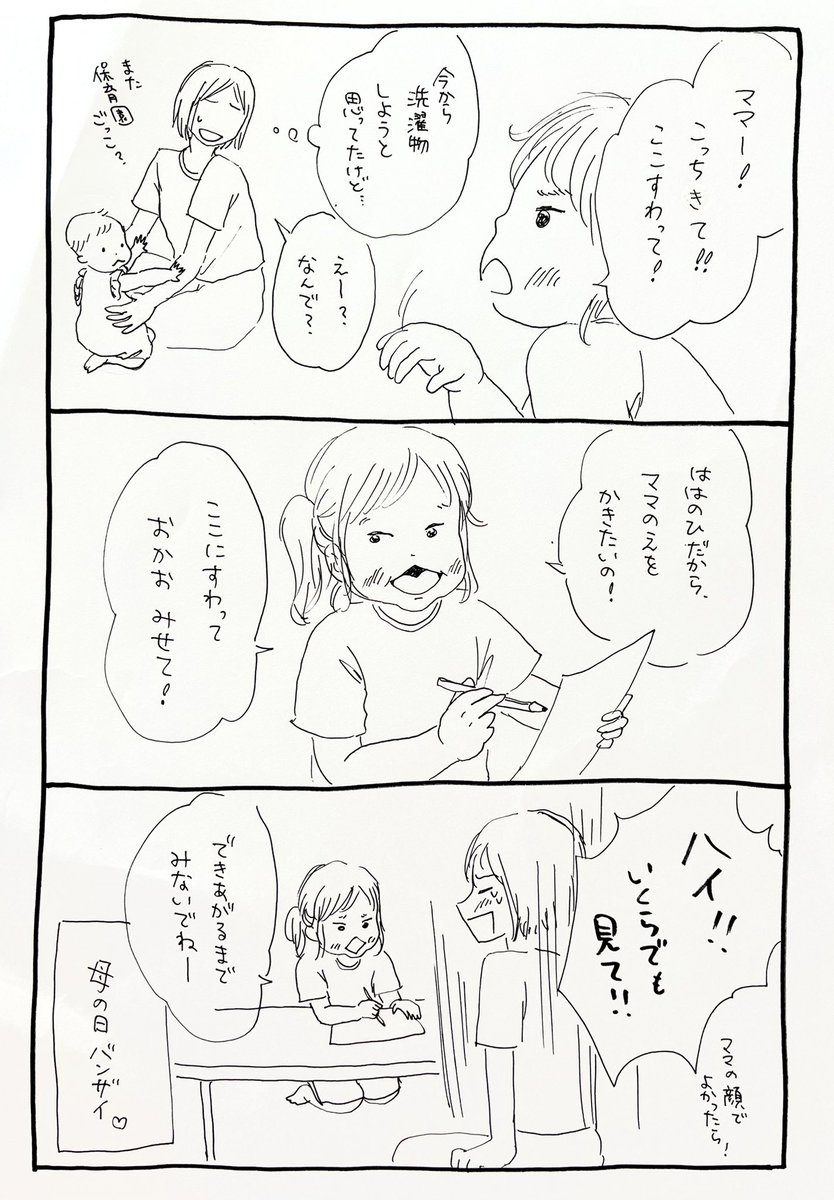 ママー!
こっちきて!!
ここすわって!
今から
洗濯物
しようと
思ってたけど…
えー?
なんで?
また
保育園
ごっこ?
ははのひだから、
ママのえを
かきたいの!
ここにすわって
おかお みせて!
ハイ!!
いくらでも
見て!!
ママの顔で
よかったら!
できあがるまで
みないでねー
母の日 バンザイ♡